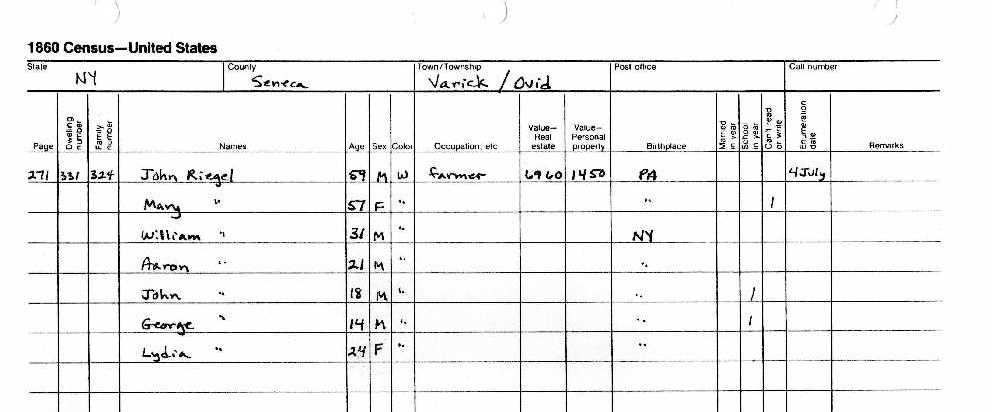 1860 Census—United States
State County Town/Township Post office Call number
NY Seneca Varick / Ovid
Page Dwelling number Family number Names Age Sex Color Occupation, etc Value—Real estate Value—Personal property Birthplace Married in year School in year Can't read or write Enumeration date Remarks
271 331 324 John Riegel 59 M W farmer 6960 1450 PA 4 July
Mary " 57 F " " 1
William " 31 M " NY
Aaron " 21 M "
John " 18 M " " 1
George " 14 M " " 1
Lydia " 24 F " "